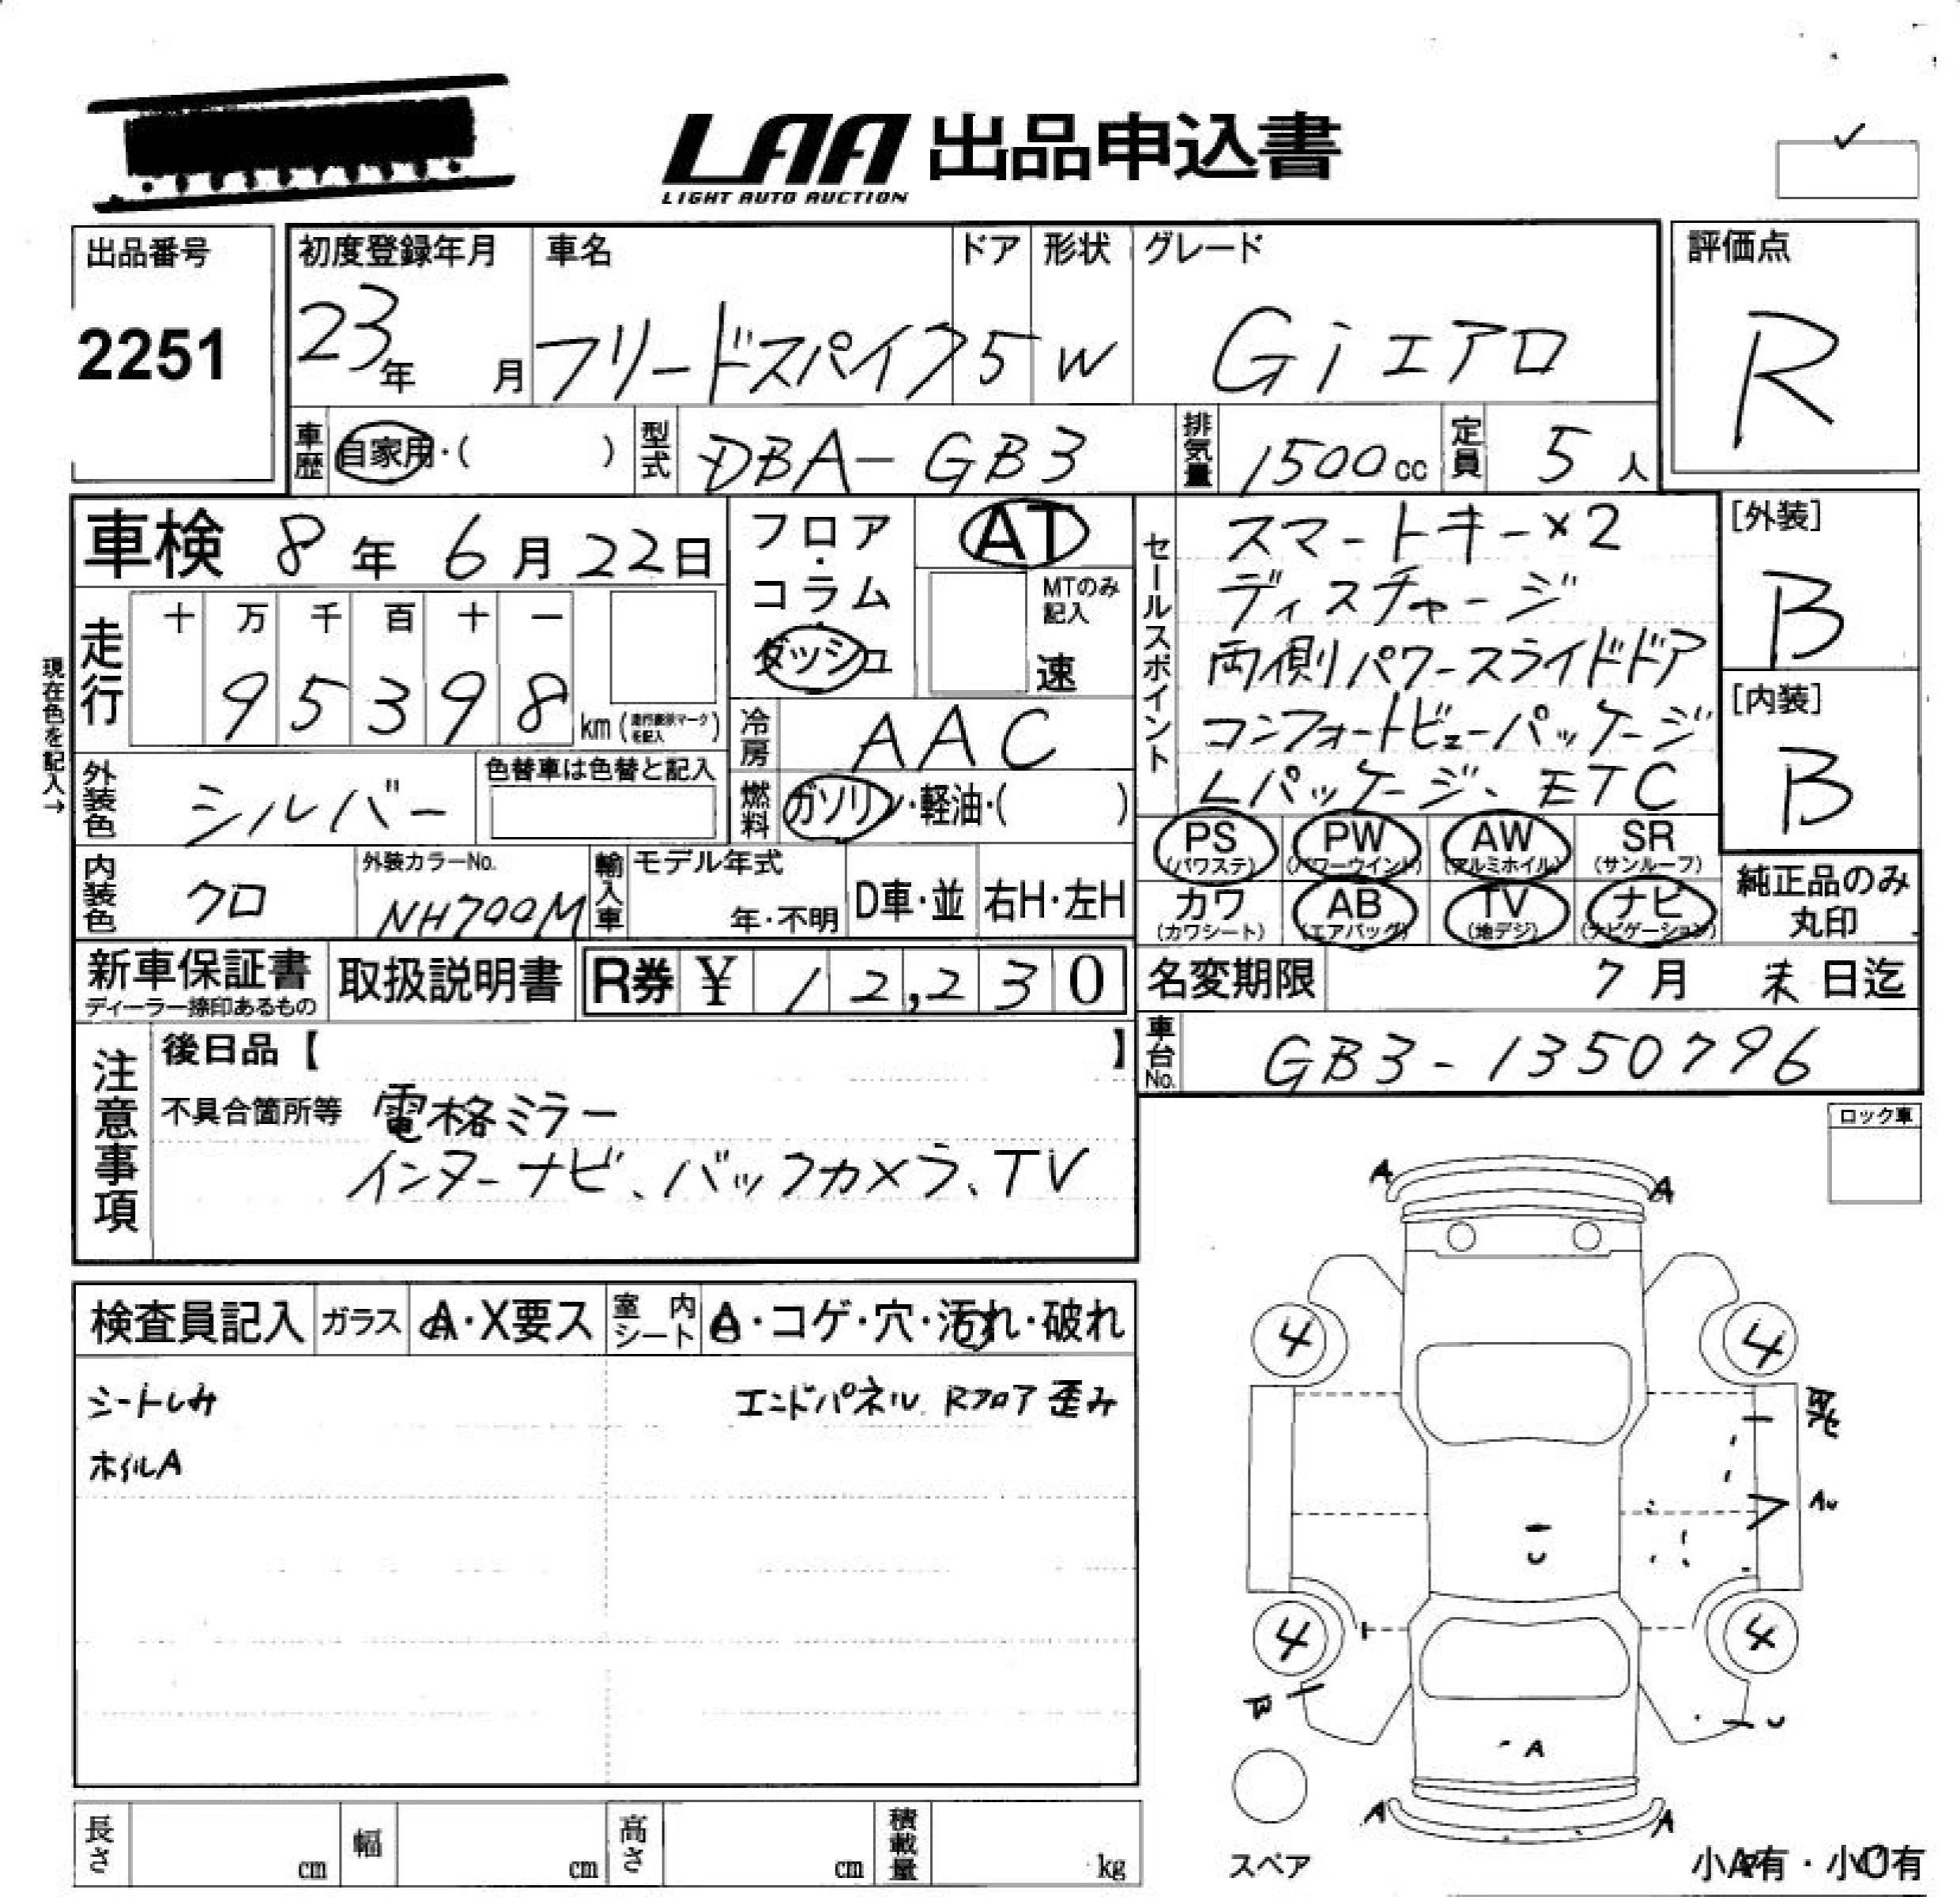 LAA 出品申込書
LIGHT AUTO AUCTION
出品番号
2251
初度登録年月
23年 月
車名
フリードスパイク
ドア
5
形状
W
グレード
Giエアロ
評価点
R
車歴
自家用・( )
型式
DBA-GB3
排気量
1500cc
定員
5人
車検 8年 6月 22日
走行
十 万 千 百 十 一
9 5 3 9 8
km (走行表示マークを記入)
現在色を記入→
外装色
シルバー
色替車は色替と記入
内装色
クロ
外装カラーNo.
NH700M
フロア・コラム・ダッシュ
AT
MTのみ記入
速
冷房
AAC
燃料
ガソリン・軽油・( )
輸入車
モデル年式
年・不明
D車・並
右H・左H
セールスポイント
スマートキー×2
ディスチャージ
両側パワースライドドア
コンフォートビューパッケージ
Lパッケージ、ETC
[外装]
B
[内装]
B
PS (パワステ)
PW (パワーウインド)
AW (アルミホイル)
SR (サンルーフ)
カワ (カワシート)
AB (エアバッグ)
TV (地デジ)
ナビ (ナビゲーション)
純正品のみ丸印
新車保証書
ディーラー捺印あるもの
取扱説明書
R券 ¥ 12,230
名変期限 7月 末日迄
車台No.
GB3-1350796
注意事項
後日品【 】
不具合箇所等 電格ミラー
インターナビ、バックカメラ、TV
ロック車
検査員記入
ガラス
A・X要ス
室内シート
A・コゲ・穴・汚れ・破れ
シートしみ
エンドパネル Rフロア 歪み
ホイルA
A
A
4
4
4
4
A
A
A
スペア
小A有・小U有
長さ
cm
幅
cm
高さ
cm
積載量
kg